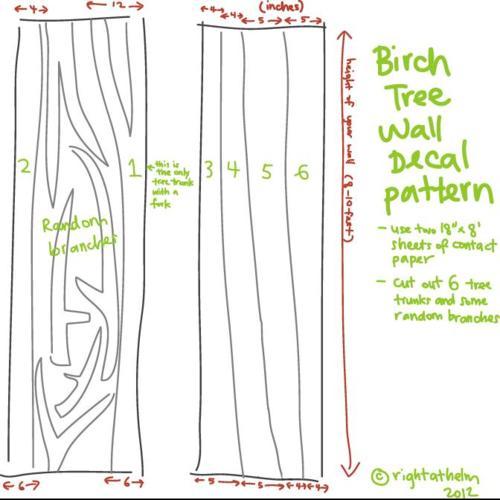 (inches)
4
12
4
4
5
5
Birch
Tree
Wall
Decal
pattern
- use two 18" x 8'
sheets of contact
paper
- cut out 6 tree
trunks and some
random branches
height of your wall (8-10 feet)
2
1
this is
the only
tree trunk
with a
fork
3
4
5
6
Random
branches
6
6
5
5
4
4
© rightathelm
2012